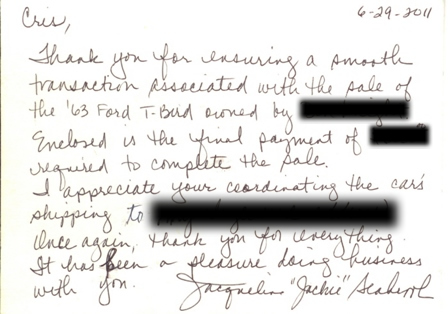 6-29-2011
Cris,
Thank you for ensuring a smooth
transaction associated with the sale of
the '63 Ford T-Bird owned by
Enclosed is the final payment of
required to complete the sale.
I appreciate your coordinating the car's
shipping to
Once again, thank you for everything.
It has been a pleasure doing business
with you. Jacqueline "Jackie"